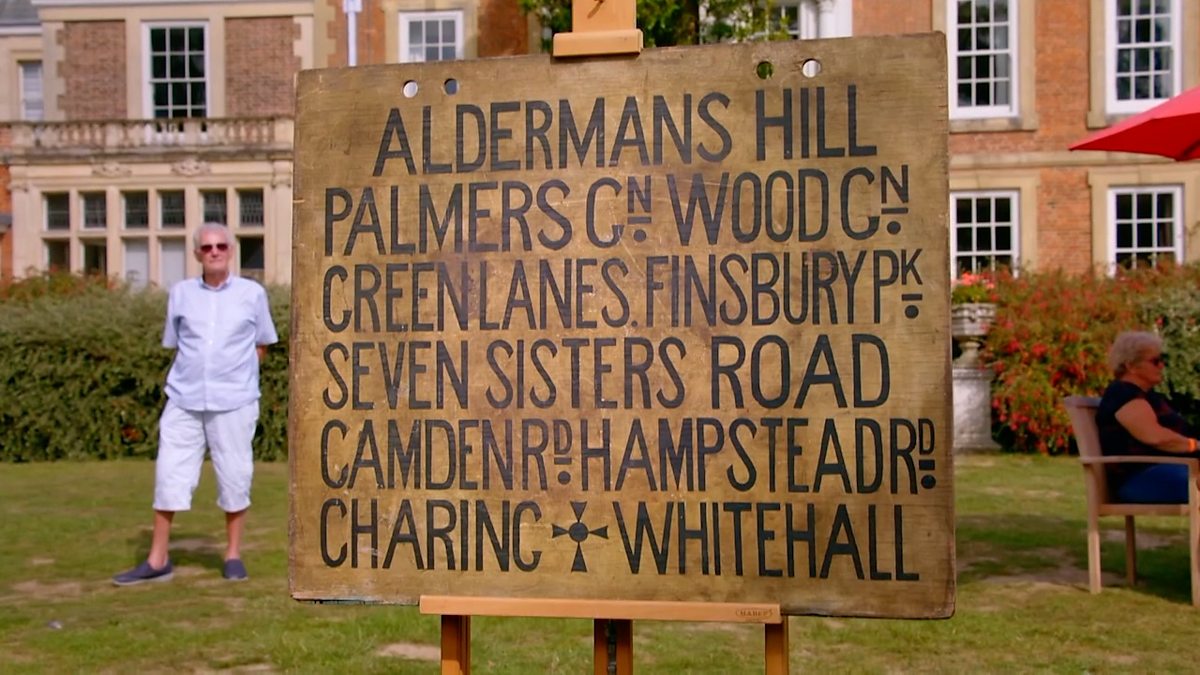 ALDERMANS HILL
PALMERS GN WOOD GN
GREEN LANES. FINSBURY PK
SEVEN SISTERS ROAD
CAMDEN RD HAMPSTEAD RD
CHARING ✠ WHITEHALL
MABEF